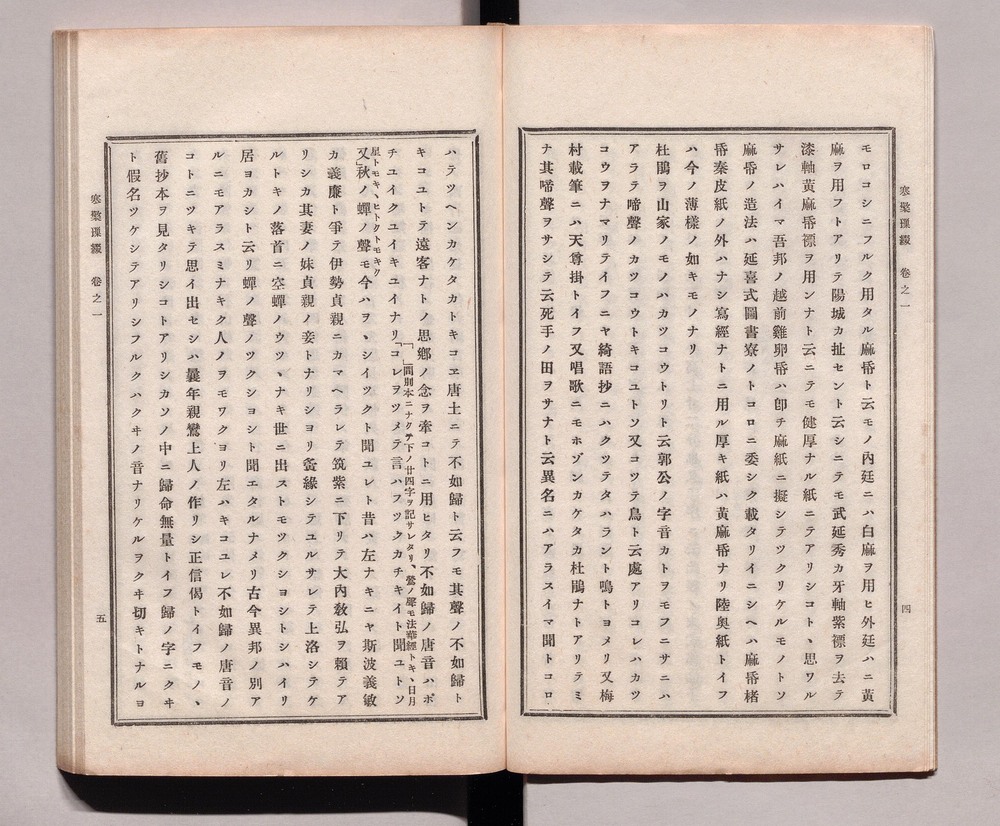 寒檠璅綴 卷之一
四
モロコシニフルク用タル麻帋ト云モノ內廷ニハ白麻ヲ用ヒ外廷ハニ黃
麻ヲ用フトアリテ陽城カ扯セント云シニテモ武延秀カ牙軸紫褾ヲ去テ
漆軸黃麻帋褾ヲ用ンナト云ニテモ健厚ナル紙ニテアリシコトヽ思ワル
サレハイマ吾邦ノ越前雞卵帋ハ卽チ麻紙ニ擬シテツクリケルモノトソ
麻帋ノ造法ハ延喜式圖書寮ノトコロニ委シク載タリイニシヘハ麻帋楮
帋秦皮紙ノ外ハナシ寫經ナトニ用ル厚キ紙ハ黃麻帋ナリ陸奥紙トイフ
ハ今ノ薄樣ノ如キモノナリ
杜鵑ヲ山家ノモノハカツコウトリト云郭公ノ字音カトヲモフニサニハ
アラテ啼聲ノカツコウトキコユトソ又コツテ鳥ト云處アリコレハカツ
コウヲナマリテイフニヤ綺語抄ニハクツテタハラント鳴トヨメリ又梅
村載筆ニハ天尊掛トイフ又唱歌ニモホゾンカケタカ杜鵑ナトアリテミ
ナ其啼聲ヲサシテ云死手ノ田ヲサナト云異名ニハアラスイマ聞トコロ
ハテツヘンカケタカトキコヱ唐土ニテ不如歸ト云フモ其聲ノ不如歸ト
キコユトテ遠客ナトノ思鄉ノ念ヲ牽コトニ用ヒタリ不如歸ノ唐音ハボ
チユイクユイキユイナリ「コレヲツメテ言ハフツクカチキイト聞ユトソ
「」間別本ニナクテ下ノ廿四字ヲ記サレタリ、鶯ノ聲モ法華經トキヽ日月
星トモキヽヒトクトモキク
又」秋ノ蟬ノ聲モ今ハヲヽシイツクト聞ユレト昔ハ左ナキニヤ斯波義敏
カ義廉ト爭テ伊勢貞親ニカマヘラレテ筑紫ニ下リテ大內敎弘ヲ賴テア
リシカ其妻ノ妹貞親ノ妾トナリシヨリ夤緣シテユルサレテ上洛シテケ
ルトキノ落首ニ空蟬ノウツヽナキ世ニ出ストモツクシヨシトシハイリ
居ヨカシト云リ蟬ノ聲ノツクシヨシト聞エタルナメリ古今異邦ノ別ア
ルニモアラスミナキク人ノヲモワクヨリ左ハキコユレ不如歸ノ唐音ノ
コトニツキテ思イ出セシハ曩年親鸞上人ノ作リシ正信偈トイフモノヽ
舊抄本ヲ見タリシコトアリシカソノ中ニ歸命無量トイフ歸ノ字ニクヰ
ト假名ツケシテアリシフルクハクヰノ音ナリケルヲクヰ切キトナルヨ
寒檠璅綴 卷之一
五